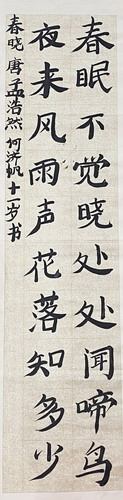 春眠不觉晓处处闻啼鸟
夜来风雨声花落知多少
春晓唐孟浩然何济帆十一岁书